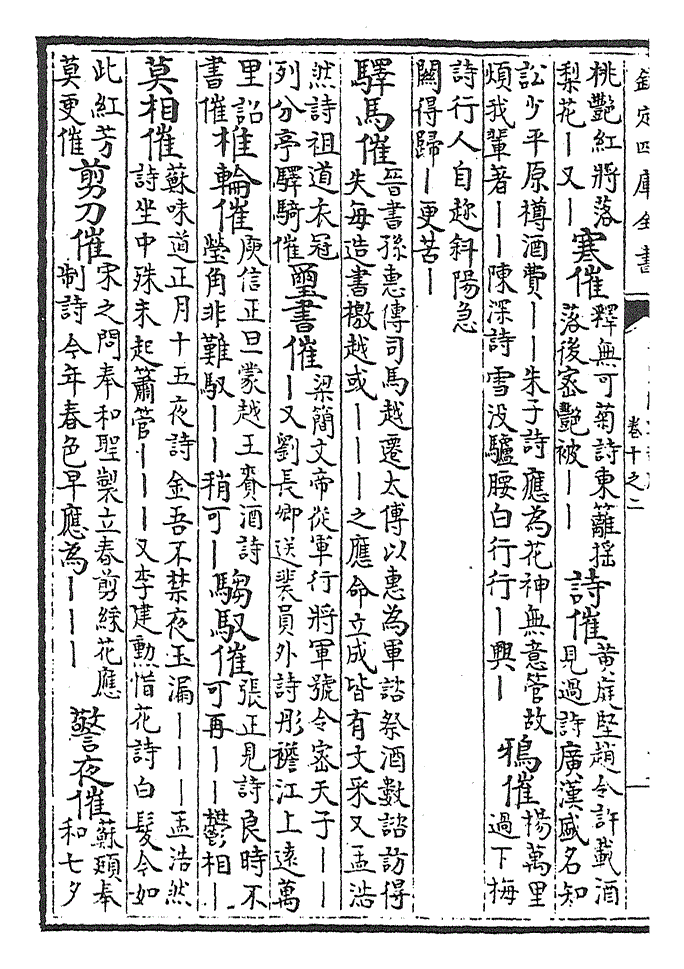 欽定四庫全書
卷十之二
桃艷紅將落
梨花｜又｜
寒催
釋無可菊詩東籬揺
落後密艷被｜｜
詩催
黄庭堅趙令許載酒
見過詩廣漢威名知
訟少平原樽酒費｜｜朱子詩應為花神無意管故
煩我輩著｜｜陳深詩雪没驢腰白行行｜興｜
鴉催
楊萬里
過下梅
詩行人自趂斜陽急
闗得歸｜更苦｜
驛馬催
晉書孫惠傳司馬越遷太傅以惠為軍諮祭酒數諮訪得
失每造書檄越或｜｜｜之應命立成皆有文采又孟浩
然詩祖道衣冠
列分亭驛騎催
璽書催
梁簡文帝從軍行將軍號令密天子｜｜
｜又劉長卿送裴員外詩彤襜江上逺萬
里詔
書催
椎輪催
庾信正旦蒙越王賚酒詩
瑩角非難馭｜｜稍可｜
騶馭催
張正見詩良時不
可再｜｜鬱相｜
莫相催
蘇味道正月十五夜詩金吾不禁夜玉漏｜｜｜孟浩然
詩坐中殊未起簫管｜｜｜又李建勲惜花詩白髮今如
此紅芳
莫更催
剪刀催
宋之問奉和聖製立春剪綵花應
制詩今年春色早應為｜｜｜
警夜催
蘇頲奉
和七夕